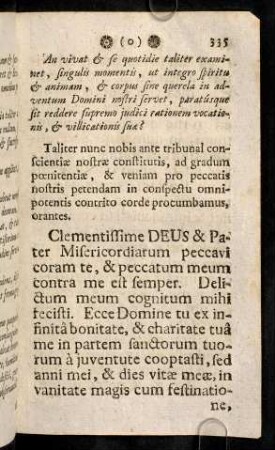 (o) 335
An vivat & se quotidie taliter exami-
net, singulis momentis, ut integro spiritu
& animam, & corpus sine querela in ad-
ventum Domini nostri servet, paratusque
sit reddere supremo judici rationem vocatio-
nis, & villicationis suæ?
Taliter nunc nobis ante tribunal con-
scientiæ nostræ constitutis, ad gradum
pœnitentiæ, & veniam pro peccatis
nostris petendam in conspectu omni-
potentis contrito corde procumbamus,
orantes.
Clementissime DEUS & Pa-
ter Misericordiarum peccavi
coram te, & peccatum meum
contra me est semper. Deli-
ctum meum cognitum mihi
fecisti. Ecce Domine tu ex in-
finitâ bonitate, & charitate tuâ
me in partem sanctorum tuo-
rum à juventute cooptasti, sed
anni mei, & dies vitæ meæ, in
vanitate magis cum festinatio-
ne,